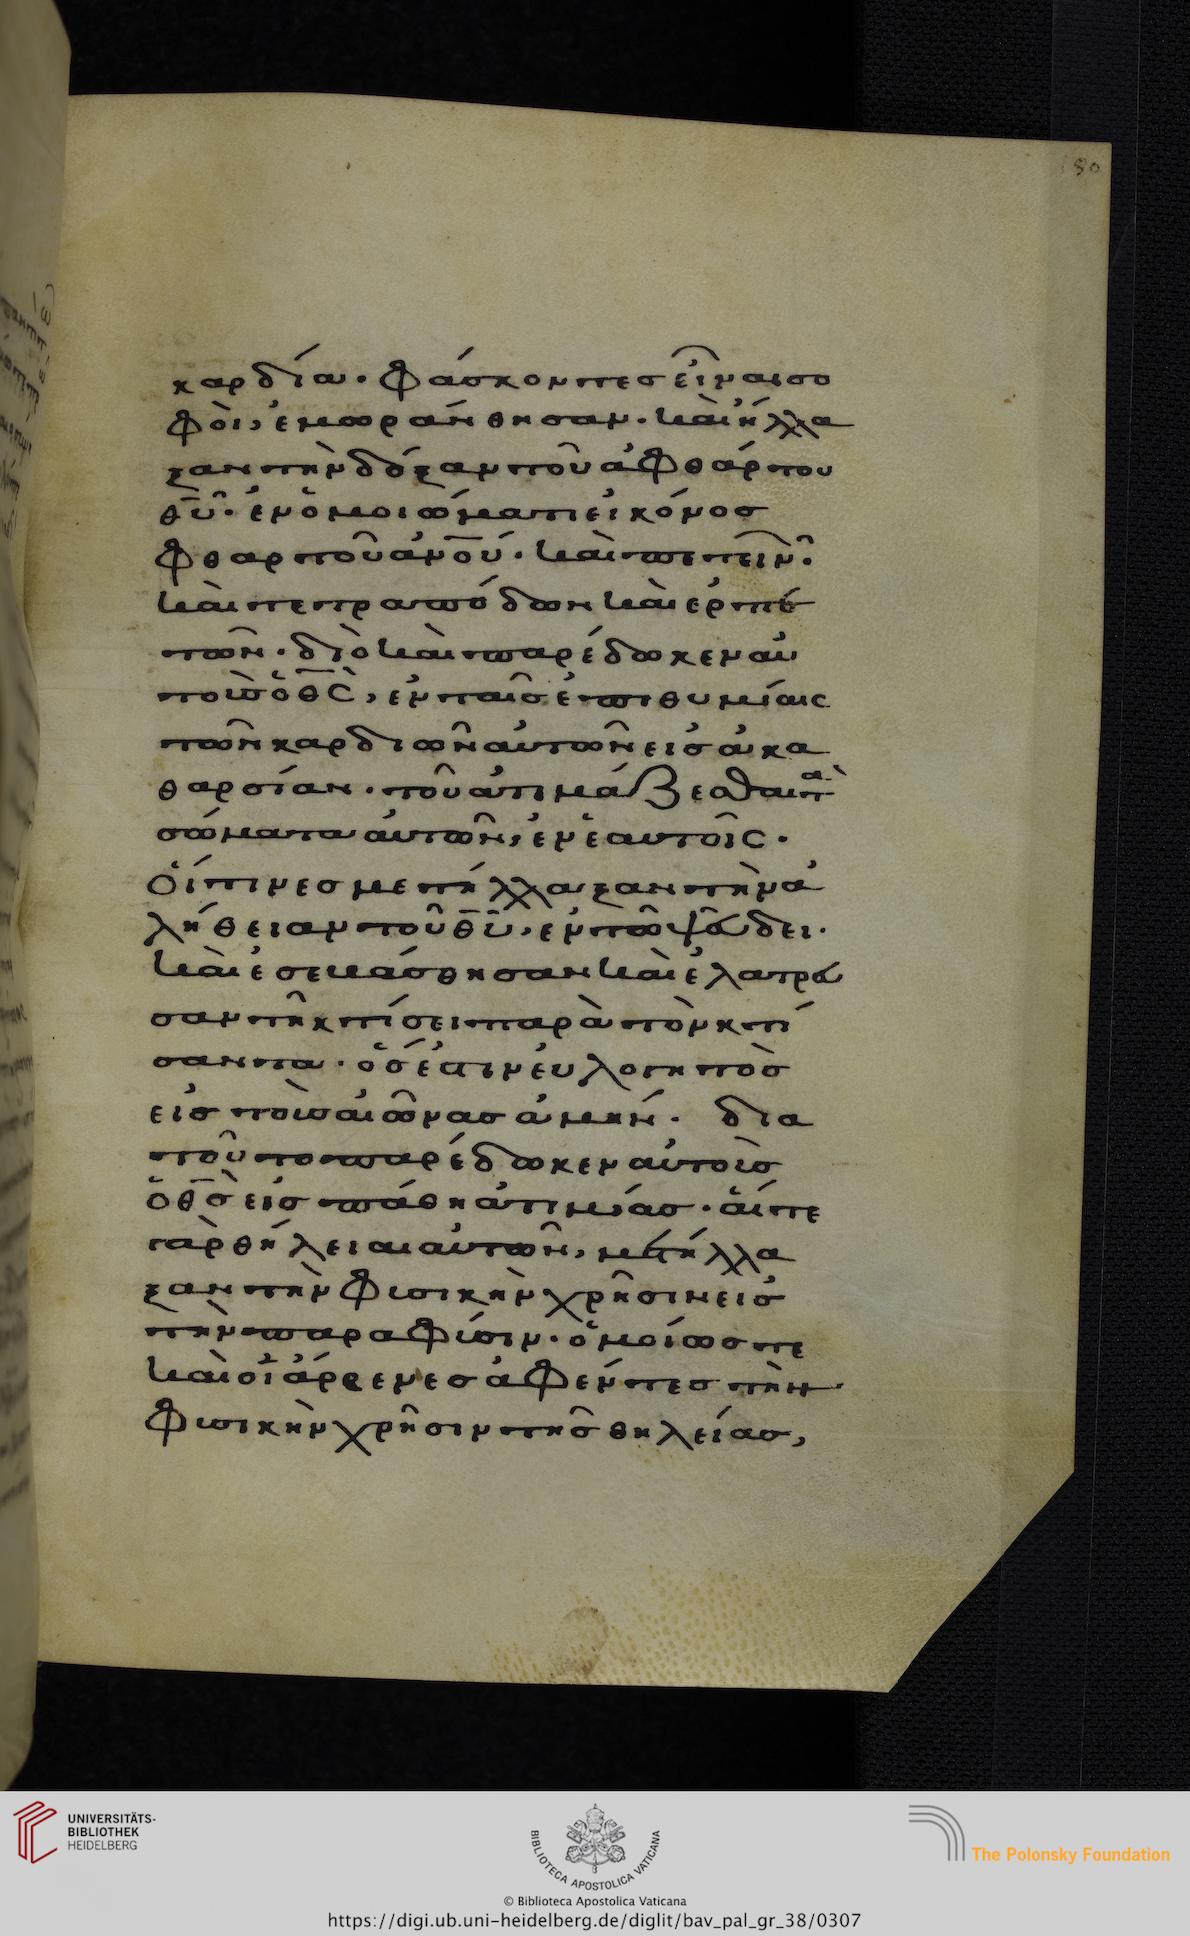 150
καρδία· φάσκοντες εἶναι σο
φοὶ, ἐμωράνθησαν· καὶ ἤλλα
ξαν τὴν δόξαν τοῦ ἀφθάρτου
θ̅υ̅· ἐν ὁμοιώματι εἰκόνος
φθαρτοῦ ἀν̅ο̅υ̅· καὶ πετειν·
καὶ τετραπόδων καὶ ἑρπε
τῶν· διὸ καὶ παρέδωκεν αὐ
τοὺς ὁ θ̅ς̅, ἐν ταῖς ἐπιθυμίαις
τῶν καρδιῶν αὐτῶν εἰς ἀκα
θαρσίαν· τοῦ ἀτιμάζεσθαι τὰ
σώματα αὐτῶν, ἐν ἑαυτοῖς·
Οἵτινες μετήλλαξαν τὴν ἀ
λήθειαν τοῦ θ̅υ̅, ἐν τῶ ψεύδει·
καὶ ἐσεβάσθησαν καὶ ἐλάτρευ
σαν τῆ κτίσει παρὰ τὸν κτί
σαντα· ὅς ἐστιν εὐλογητὸς
εἰς τοὺς αἰῶνας ἀμήν· δια
τοῦτο παρέδωκεν αὐτοὺς
ὁ θ̅ς̅ εἰς πάθη ἀτιμίας· αἵ τε
γὰρ θήλειαι αὐτῶν, μετήλλα
ξαν τὴν φυσικὴν χρῆσιν εἰς
τὴν παρα φύσιν· ὁμοίως τε
καὶ οἱ ἄρρενες ἀφέντες τὴν
φυσικὴν χρῆσιν τῆς θηλείας,
UNIVERSITÄTS-
BIBLIOTHEK
HEIDELBERG
BIBLIOTECA APOSTOLICA VATICANA
The Polonsky Foundation
© Biblioteca Apostolica Vaticana
https://digi.ub.uni-heidelberg.de/diglit/bav_pal_gr_38/0307